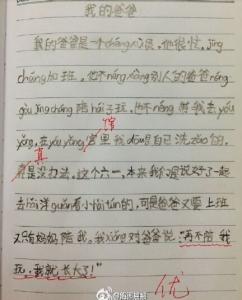 我的爸爸
我的爸爸是一个cháng 他很忙，jīng
cháng加班，他不néng xàng别人的爸爸nàng
gòu jīng cháng陪hái子玩，他不néng 我去yóu
yǒng，去yóu yǒng宫里我dōu是自己洗zǎo的，
馆
真
是没办法。这个六一，本来我 说好了一起
去hǎi洋guǎn看小 的，可是爸爸又要上班
又只有妈妈陪我。我xiǎng对爸爸说：“再不陪我
玩，我就长大了！”
优